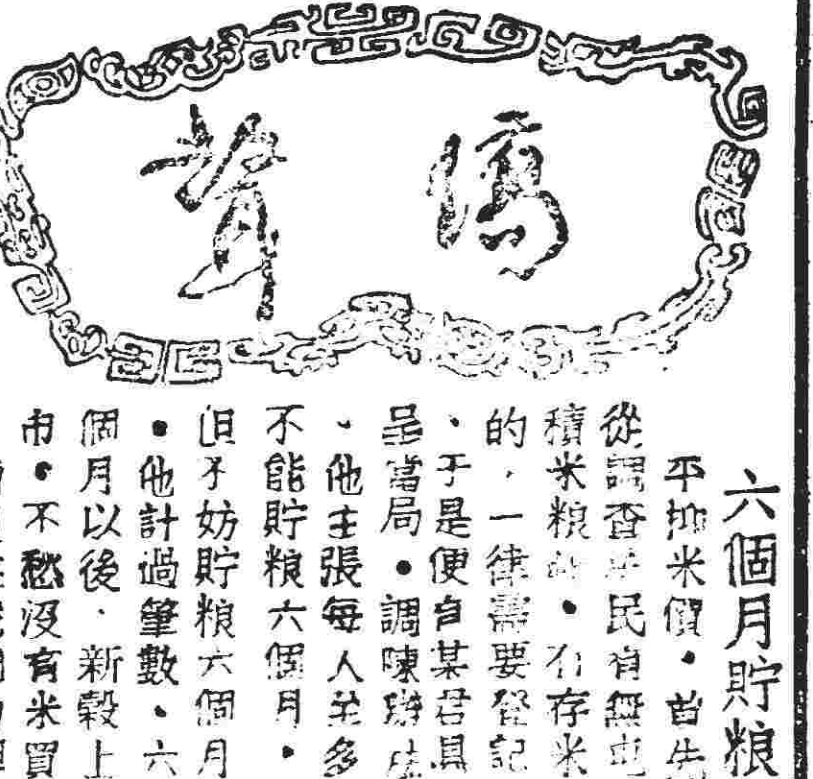 僑聲
六個月貯粮
平抑米價。首先
從調查平民有無屯
積米粮起。有存米
的，一律需要登記
、于是便有某君具
呈當局。調陳辦法
、他主張每人至多
不能貯粮六個月。
但不妨貯粮六個月
。他計過筆數。六
個月以後．新穀上
市。不愁沒有米買